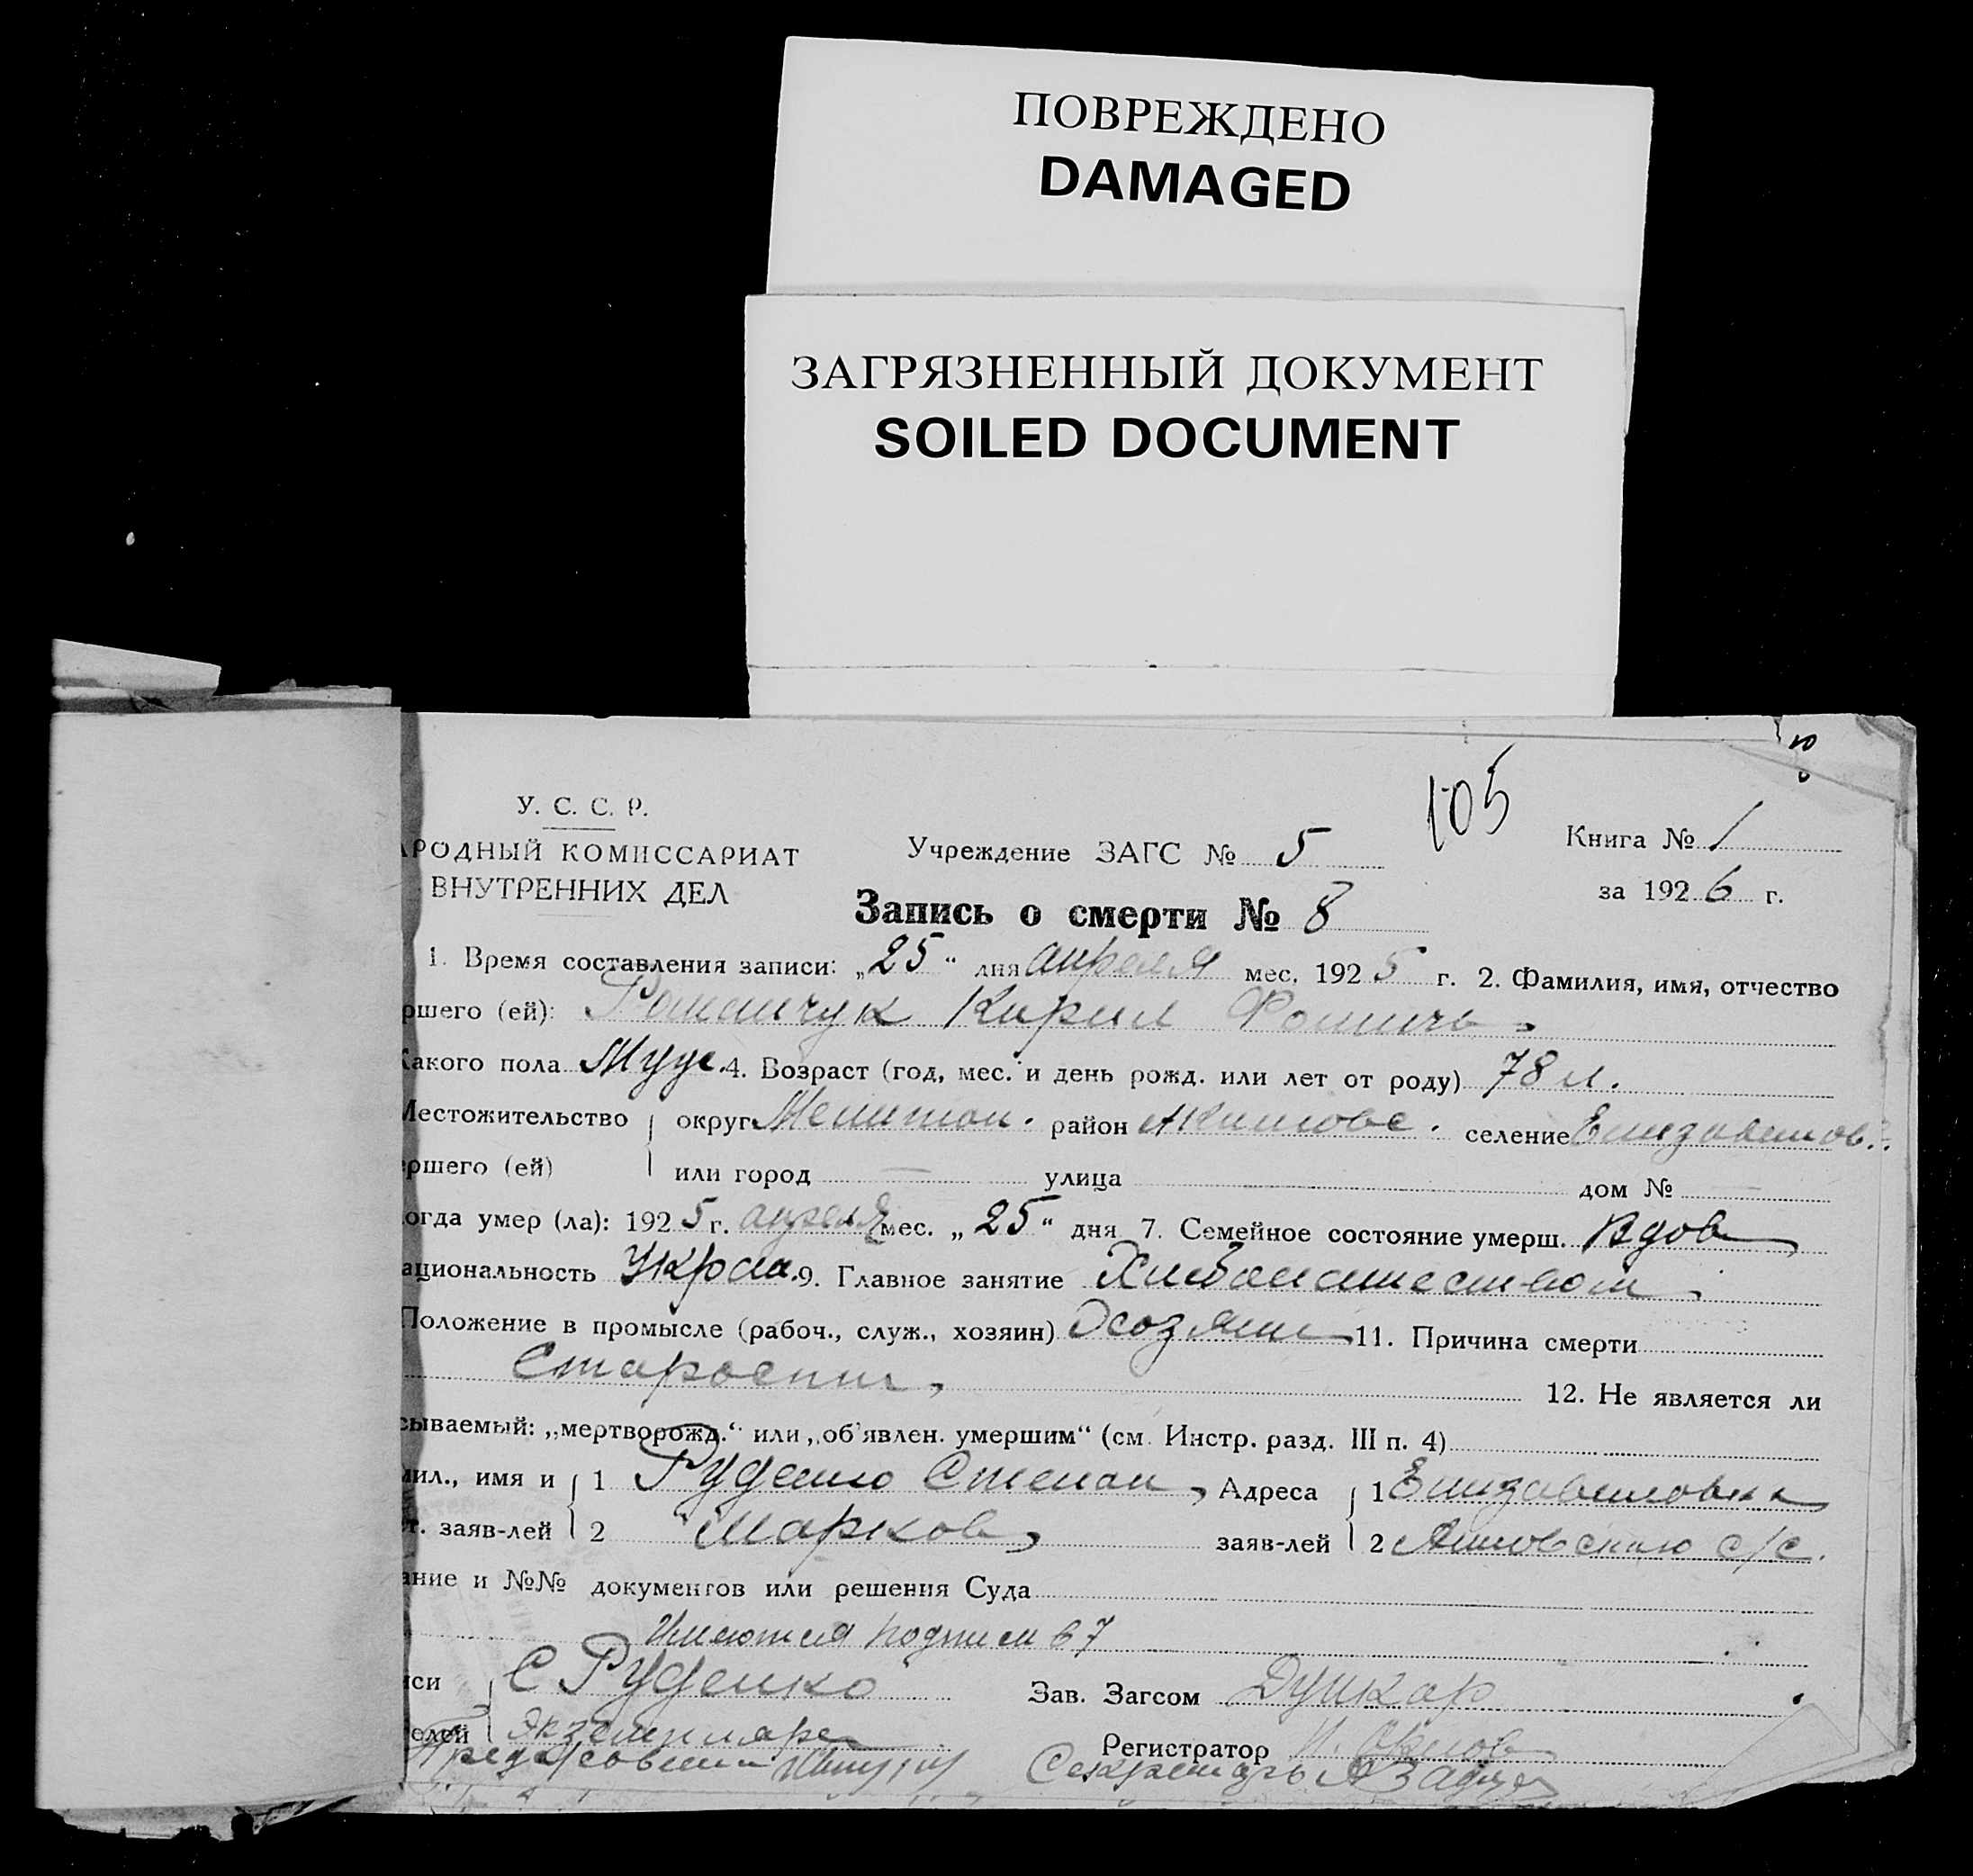 ПОВРЕЖДЕНО
DAMAGED
ЗАГРЯЗНЕННЫЙ ДОКУМЕНТ
SOILED DOCUMENT
105
У. С. С. Р.
РОДНЫЙ КОМИССАРИАТ
ВНУТРЕННИХ ДЕЛ
Учреждение ЗАГС № 5
Книга № 1
за 1926 г.
Запись о смерти № 8
1. Время составления записи: „25“ дня апреля мес. 1925 г. 2. Фамилия, имя, отчество
ршего (ей): Романчук Кирил Фомичь
акого пола Муж. 4. Возраст (год, мес. и день рожд. или лет от роду) 78 л.
Местожительство округ Мелитоп. район Акимовс. селение Елизаветов.
ршего (ей) или город — улица дом № —
огда умер (ла): 1925 г. апреля мес. „25“ дня 7. Семейное состояние умерш. Вдов
ациональность Украи. 9. Главное занятие
Положение в промысле (рабоч., служ., хозяин) 11. Причина смерти
Старости, 12. Не является ли
сываемый: „мертворожд.“ или „об'явлен. умершим“ (см. Инстр. разд. III п. 4)
ил., имя и 1 Руденко Степан, Адреса 1 Елизаветовка
т. заяв-лей 2 Марков, заяв-лей 2 с/с.
ание и №№ документов или решения Суда
Имеются подписи в 7
си С Руденко Зав. Загсом
елей Экземпляре Регистратор
Секретарь